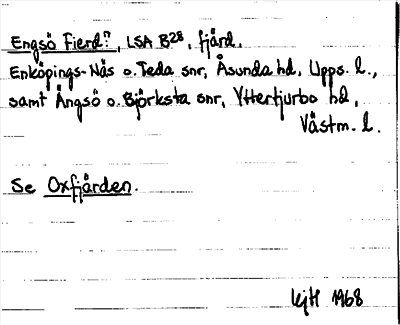 Engsö Fierd?, LSA B28, fjärd.
Enköpings-Näs o. Teda snr, Åsunda hd, Upps. l.,
samt Ängsö o. Björksta snr, Yttertjurbo hd,
Västm. l.
Se Oxfjärden.
kjH 1968